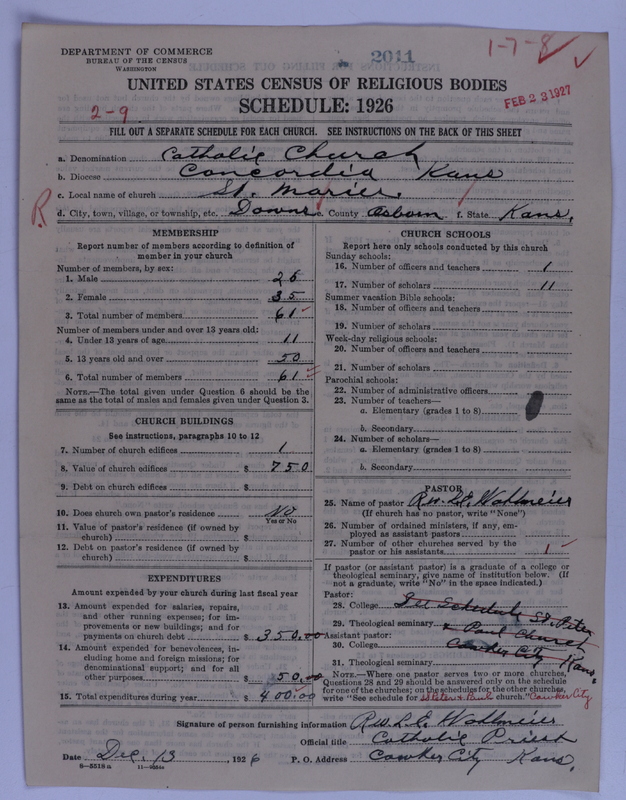 DEPARTMENT OF COMMERCE
BUREAU OF THE CENSUS
WASHINGTON
2011
1-7-8
FEB 23 1927
UNITED STATES CENSUS OF RELIGIOUS BODIES
SCHEDULE: 1926
2-9
FILL OUT A SEPARATE SCHEDULE FOR EACH CHURCH. SEE INSTRUCTIONS ON THE BACK OF THIS SHEET
a. Denomination Catholic Church
b. Diocese Concordia Kans
c. Local name of church St. Maries.
R
d. City, town, village, or township, etc. Downs e. County Osborn f. State Kans.
MEMBERSHIP
Report number of members according to definition of
member in your church
Number of members, by sex:
1. Male 26
2. Female 35
3. Total number of members 61
Number of members under and over 13 years old:
4. Under 13 years of age 11
5. 13 years old and over 50
6. Total number of members 61
NOTE.—The total given under Question 6 should be
same as the total of males and females given under Question 3.
CHURCH BUILDINGS
See instructions, paragraphs 10 to 12
7. Number of church edifices 1
8. Value of church edifices $ 750
9. Debt on church edifices $
10. Does church own pastor's residence No
Yes or No
11. Value of pastor's residence (if owned by
church) $
12. Debt on pastor's residence (if owned by
church) $
EXPENDITURES
Amount expended by your church during last fiscal year
13. Amount expended for salaries, repairs,
and other running expenses; for im-
provements or new buildings; and for
payments on church debt $ 350.00
14. Amount expended for benevolences, in-
cluding home and foreign missions; for
denominational support; and for all
other purposes $ 50.00
15. Total expenditures during year $ 400.00
CHURCH SCHOOLS
Report here only schools conducted by this church
Sunday schools:
16. Number of officers and teachers 1
17. Number of scholars 11
Summer vacation Bible schools:
18. Number of officers and teachers
19. Number of scholars
Week-day religious schools:
20. Number of officers and teachers
21. Number of scholars
Parochial schools:
22. Number of administrative officers
23. Number of teachers—
a. Elementary (grades 1 to 8)
b. Secondary
24. Number of scholars—
a. Elementary (grades 1 to 8)
b. Secondary
PASTOR
25. Name of pastor Rev. L.E. Wahlmeier
(If church has no pastor, write "None")
26. Number of ordained ministers, if any, em-
ployed as assistant pastors
27. Number of other churches served by the
pastor or his assistants 1
If pastor (or assistant pastor) is a graduate of a college or
theological seminary, give name of institution below. (If
not a graduate, write "No" in the space indicated.)
Pastor:
28. College See Schedule St. Peter
29. Theological seminary & Paul Church
Assistant pastor:
30. College Cawker City Kans.
31. Theological seminary
NOTE.—Where one pastor serves two or more churches,
Questions 28 and 29 should be answered only on the schedule
for one of the churches; on the schedules for the other churches,
write "See schedule for St Peter & Paul church." Cawker City
Signature of person furnishing information Rev. L.E. Wahlmeier
Official title Catholic Priest
Date Dec. 13, 1926 P. O. Address Cawker City Kans.
8—5518 a